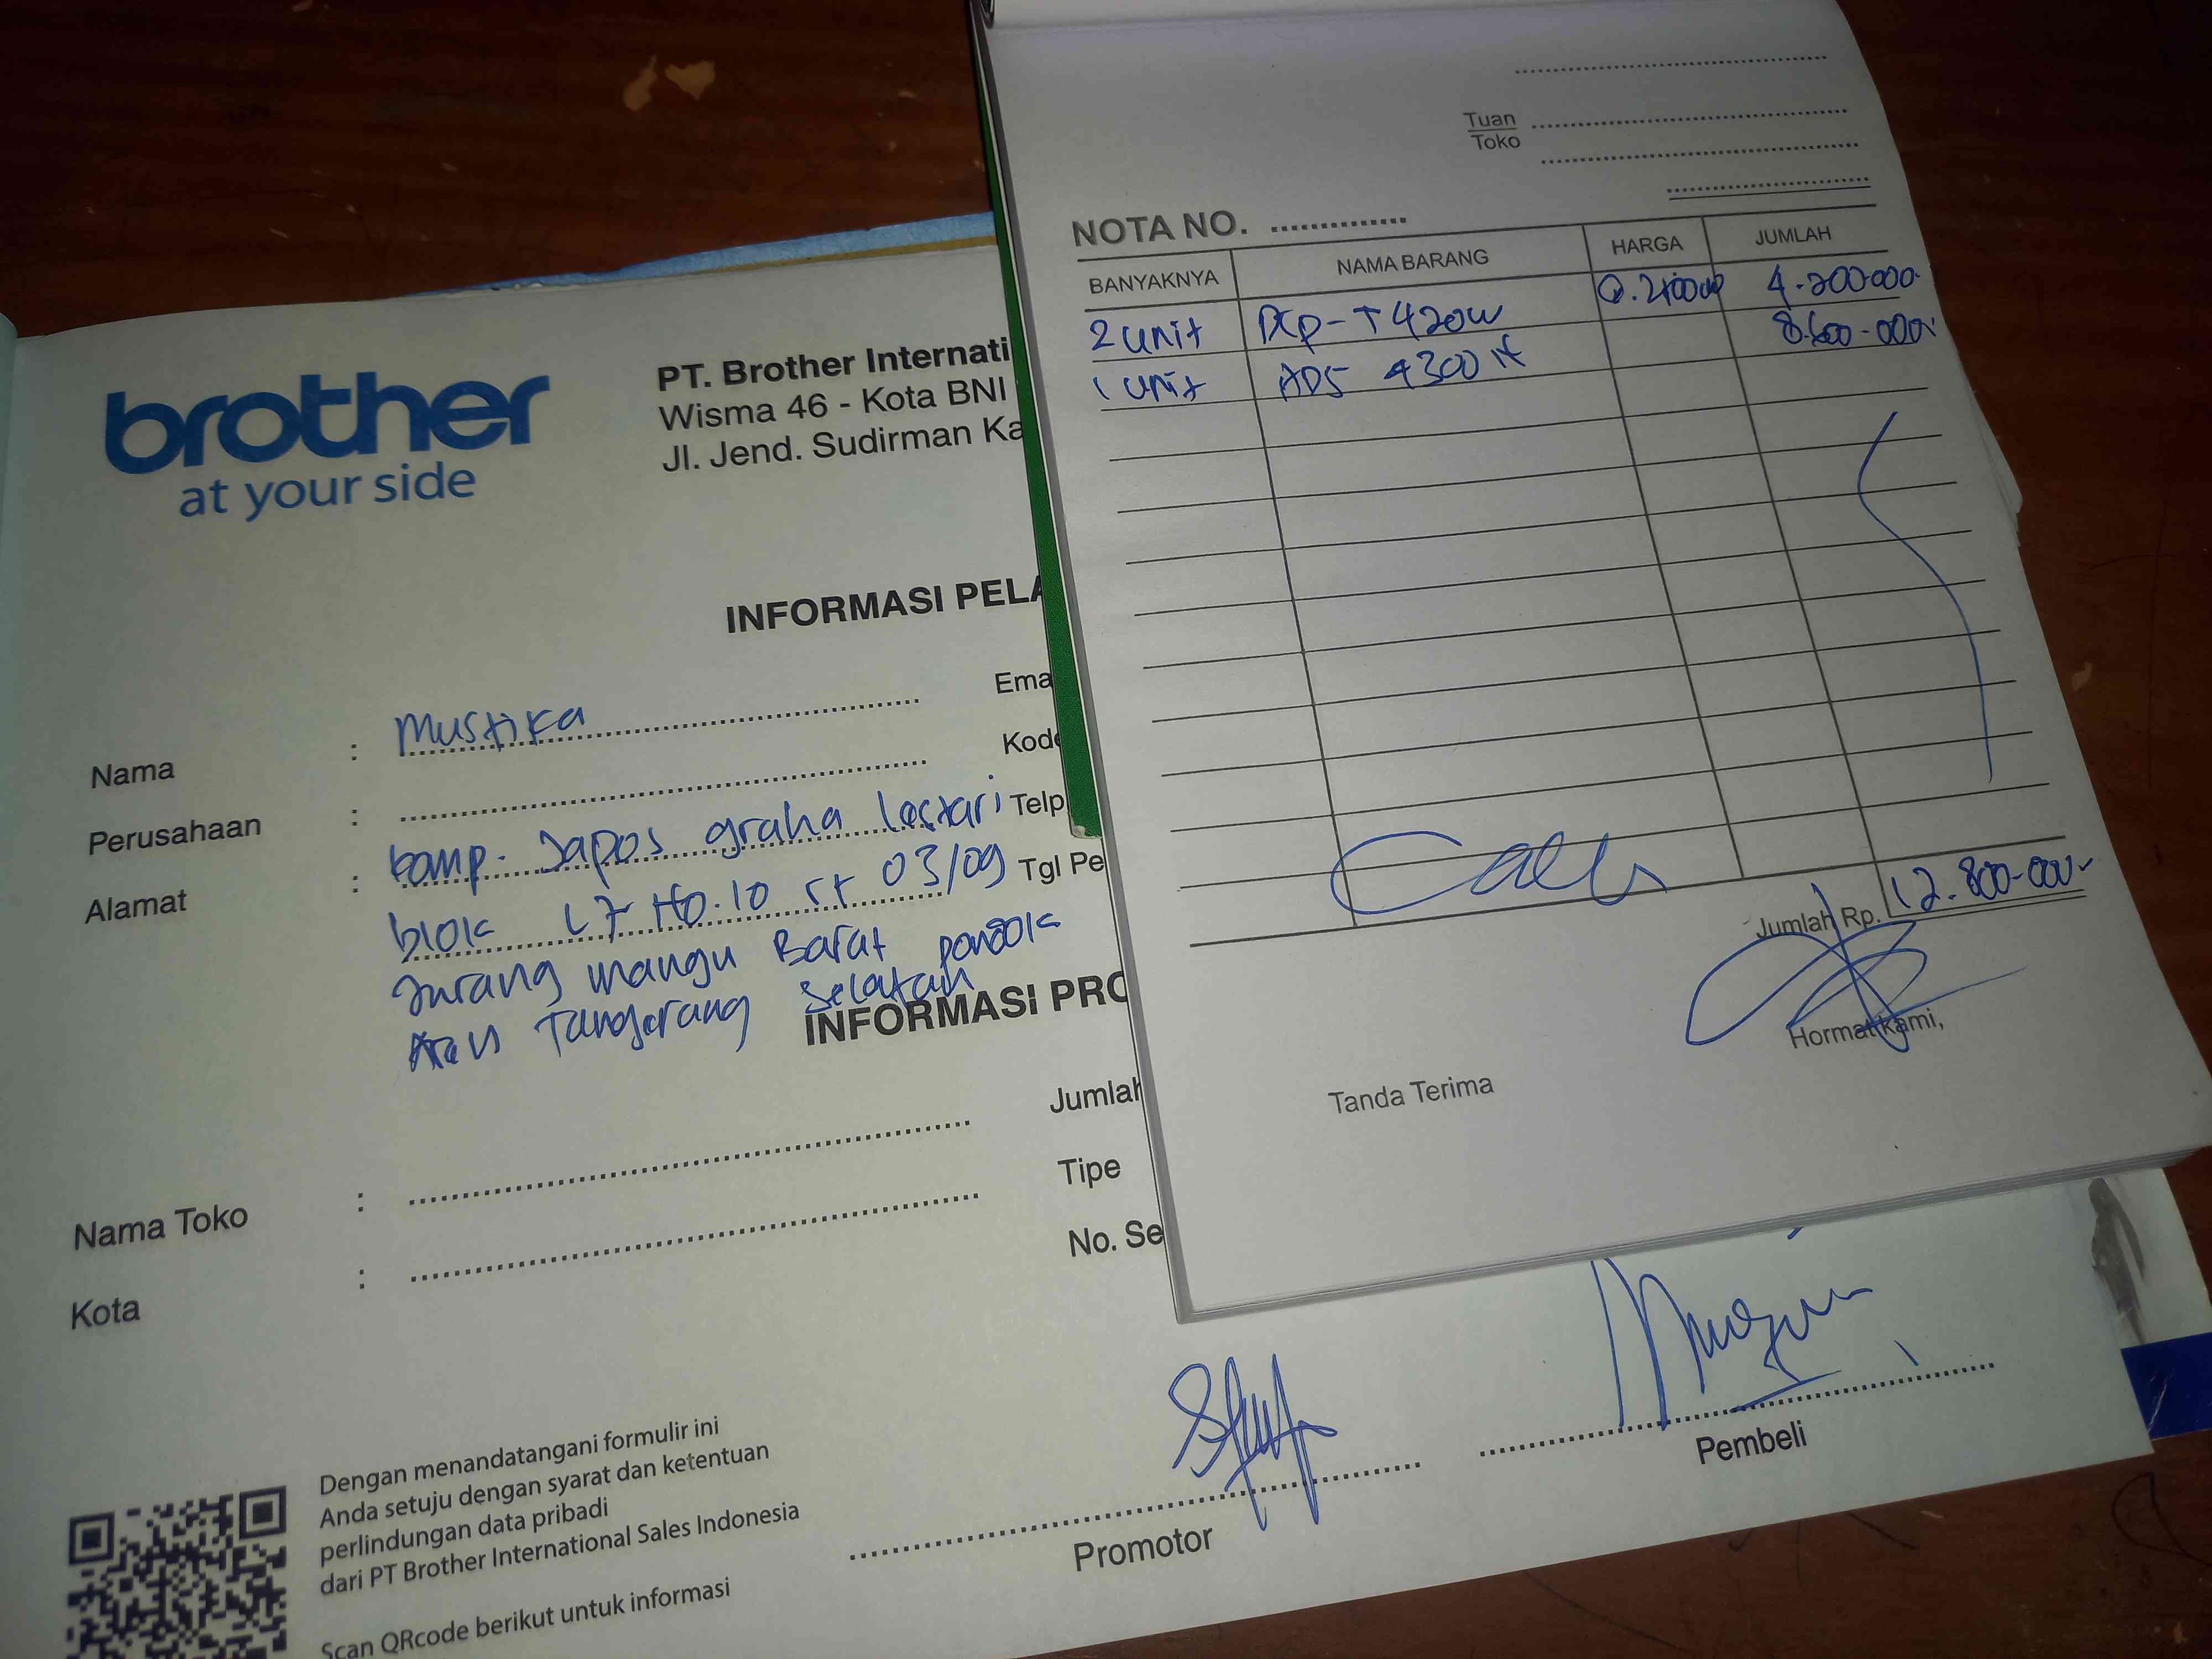 brother
at your side
PT. Brother Internati
Wisma 46 - Kota BNI
Jl. Jend. Sudirman Ka
INFORMASI PELA
Nama : Mustika
Perusahaan :
Alamat : komp. Japos graha lestari
blok L7 No.10 rt 03/09
Jurang mangu Barat pondok
Aren Tangerang Selatan
Ema
Kode
Telp
Tgl Pe
INFORMASI PRO
Nama Toko :
Kota :
Jumlah
Tipe
No. Se
Dengan menandatangani formulir ini
Anda setuju dengan syarat dan ketentuan
perlindungan data pribadi
dari PT Brother International Sales Indonesia
Scan QRcode berikut untuk informasi
Promotor
Pembeli
Tuan
Toko
NOTA NO.
BANYAKNYA NAMA BARANG HARGA JUMLAH
2 unit DCP-T420W @.2100000 4.200.000
1 unit ADS 4300N 8.600.000
Cash
Jumlah Rp. 12.800.000
Tanda Terima
Hormat kami,